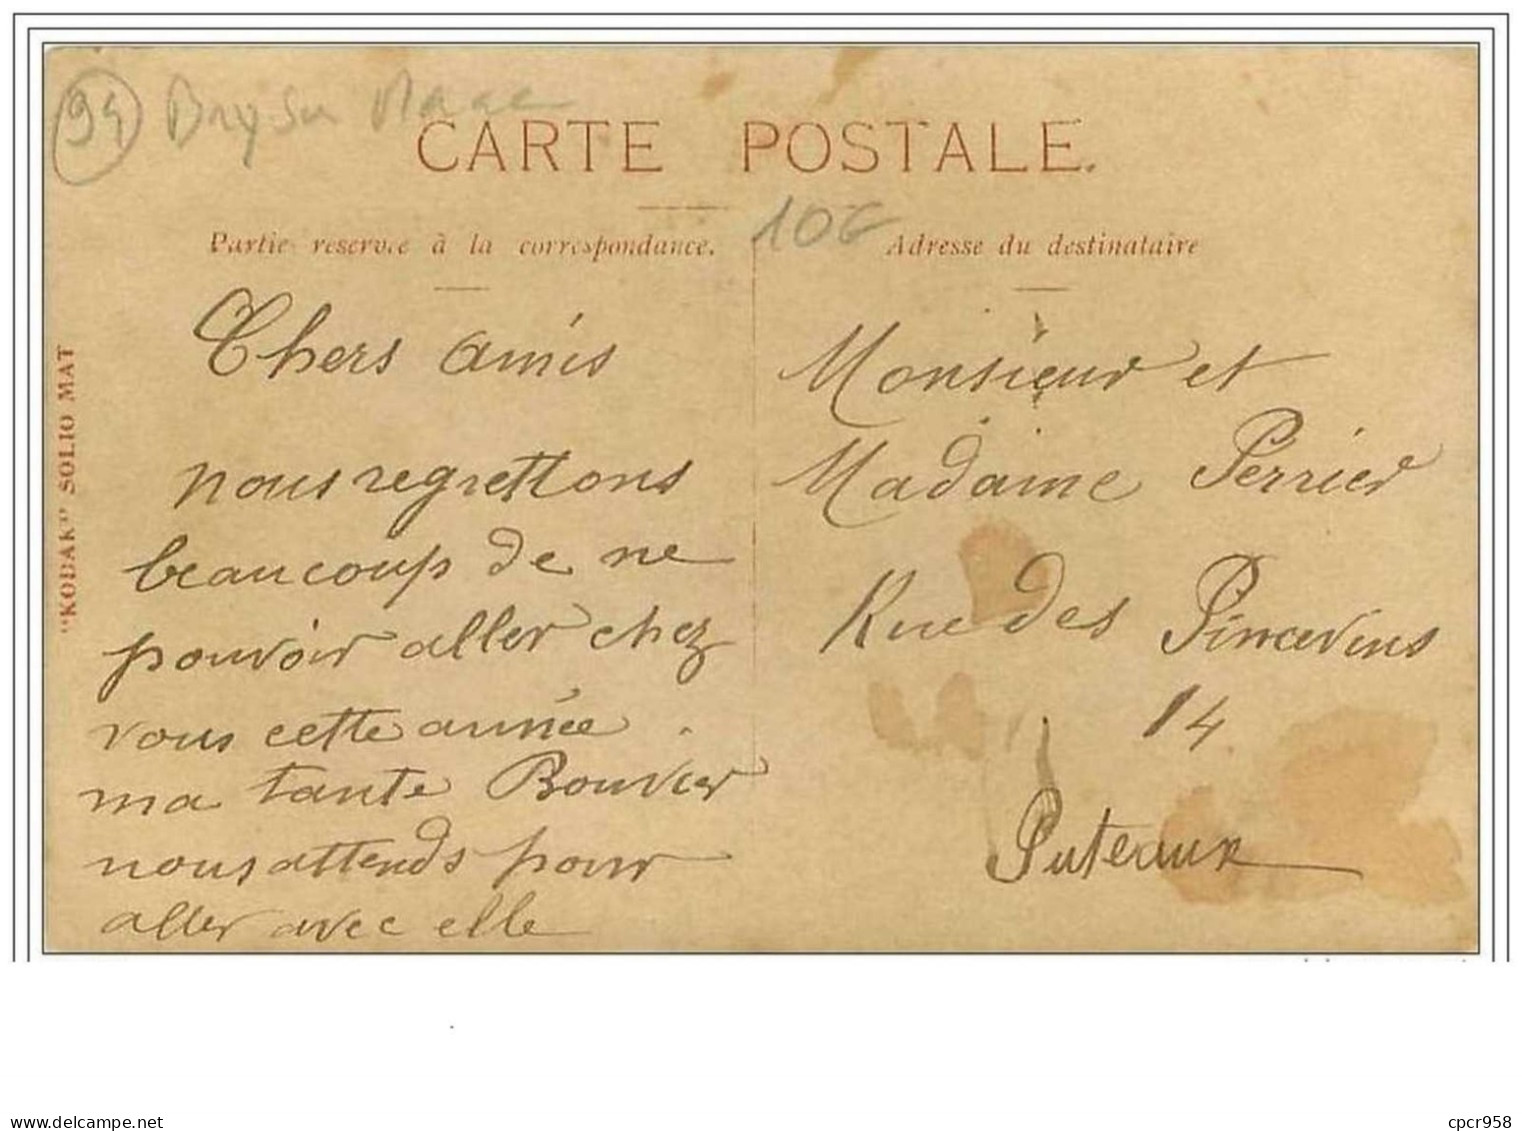 94 Bry sur Marne
CARTE POSTALE.
10€
Partie réservée à la correspondance.
Adresse du destinataire
"KODAK" SOLIO MAT
Chers amis
nous regrettons
beaucoup de ne
pouvoir aller chez
vous cette année.
ma tante Bouvier
nous attends pour
aller avec elle
Monsieur et
Madame Perrier
Rue des Pincevins
14
Puteaux
delcampe.net
cpcr958